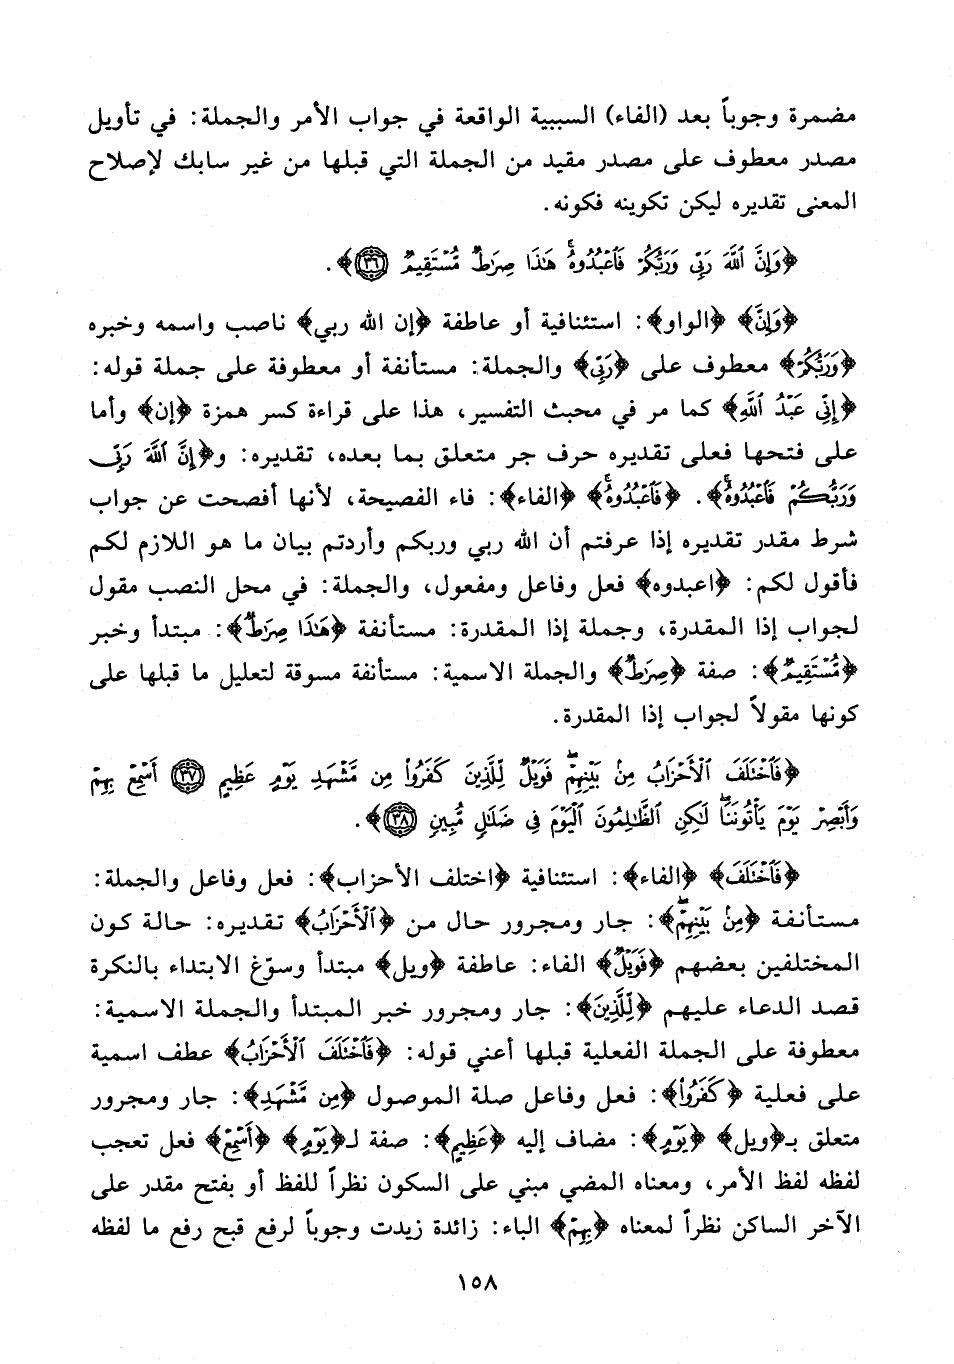 مضمرة وجوباً بعد (الفاء) السببية الواقعة في جواب الأمر والجملة: في تأويل
مصدر معطوف على مصدر مقيد من الجملة التي قبلها من غير سابك لإصلاح
المعنى تقديره ليكن تكوينه فكونه.
﴿وَإِنَّ ٱللَّهَ رَبِّى وَرَبُّكُمْ فَٱعْبُدُوهُ ۚ هَٰذَا صِرَٰطٌ مُّسْتَقِيمٌ ٣٦﴾.
﴿وَإِنَّ﴾ ﴿الواو﴾: استئنافية أو عاطفة ﴿إن الله ربي﴾ ناصب واسمه وخبره
﴿وَرَبُّكُمْ﴾ معطوف على ﴿رَبِّى﴾ والجملة: مستأنفة أو معطوفة على جملة قوله:
﴿إِنِّى عَبْدُ ٱللَّهِ﴾ كما مر في محبث التفسير، هذا على قراءة كسر همزة ﴿إن﴾ وأما
على فتحها فعلى تقديره حرف جر متعلق بما بعده، تقديره: و﴿إِنَّ ٱللَّهَ رَبِّى
وَرَبُّكُمْ فَٱعْبُدُوهُ ۚ﴾. ﴿فَٱعْبُدُوهُ ۚ﴾ ﴿الفاء﴾: فاء الفصيحة، لأنها أفصحت عن جواب
شرط مقدر تقديره إذا عرفتم أن الله ربي وربكم وأردتم بيان ما هو اللازم لكم
فأقول لكم: ﴿اعبدوه﴾ فعل وفاعل ومفعول، والجملة: في محل النصب مقول
لجواب إذا المقدرة، وجملة إذا المقدرة: مستأنفة ﴿هَٰذَا صِرَٰطٌ﴾: مبتدأ وخبر
﴿مُّسْتَقِيمٌ﴾: صفة ﴿صِرَٰطٌ﴾ والجملة الاسمية: مستأنفة مسوقة لتعليل ما قبلها على
كونها مقولاً لجواب إذا المقدرة.
﴿فَٱخْتَلَفَ ٱلْأَحْزَابُ مِنۢ بَيْنِهِمْ ۖ فَوَيْلٌ لِّلَّذِينَ كَفَرُوا۟ مِن مَّشْهَدِ يَوْمٍ عَظِيمٍ ٣٧ أَسْمِعْ بِهِمْ
وَأَبْصِرْ يَوْمَ يَأْتُونَنَا ۖ لَٰكِنِ ٱلظَّٰلِمُونَ ٱلْيَوْمَ فِى ضَلَٰلٍ مُّبِينٍ ٣٨﴾.
﴿فَٱخْتَلَفَ﴾ ﴿الفاء﴾: استئنافية ﴿اختلف الأحزاب﴾: فعل وفاعل والجملة:
مستأنفة ﴿مِنۢ بَيْنِهِمْ ۖ﴾: جار ومجرور حال من ﴿ٱلْأَحْزَابُ﴾ تقديره: حالة كون
المختلفين بعضهم ﴿فَوَيْلٌ﴾ الفاء: عاطفة ﴿ويل﴾ مبتدأ وسوّغ الابتداء بالنكرة
قصد الدعاء عليهم ﴿لِّلَّذِينَ﴾: جار ومجرور خبر المبتدأ والجملة الاسمية:
معطوفة على الجملة الفعلية قبلها أعني قوله: ﴿فَٱخْتَلَفَ ٱلْأَحْزَابُ﴾ عطف اسمية
على فعلية ﴿كَفَرُوا۟﴾: فعل وفاعل صلة الموصول ﴿مِن مَّشْهَدِ﴾: جار ومجرور
متعلق بـ﴿ويل﴾ ﴿يَوْمٍ﴾: مضاف إليه ﴿عَظِيمٍ﴾: صفة لـ﴿يَوْمٍ﴾ ﴿أَسْمِعْ﴾ فعل تعجب
لفظه لفظ الأمر، ومعناه المضي مبني على السكون نظراً للفظ أو بفتح مقدر على
الآخر الساكن نظراً لمعناه ﴿بِهِمْ﴾ الباء: زائدة زيدت وجوباً لرفع قبح رفع ما لفظه
١٥٨